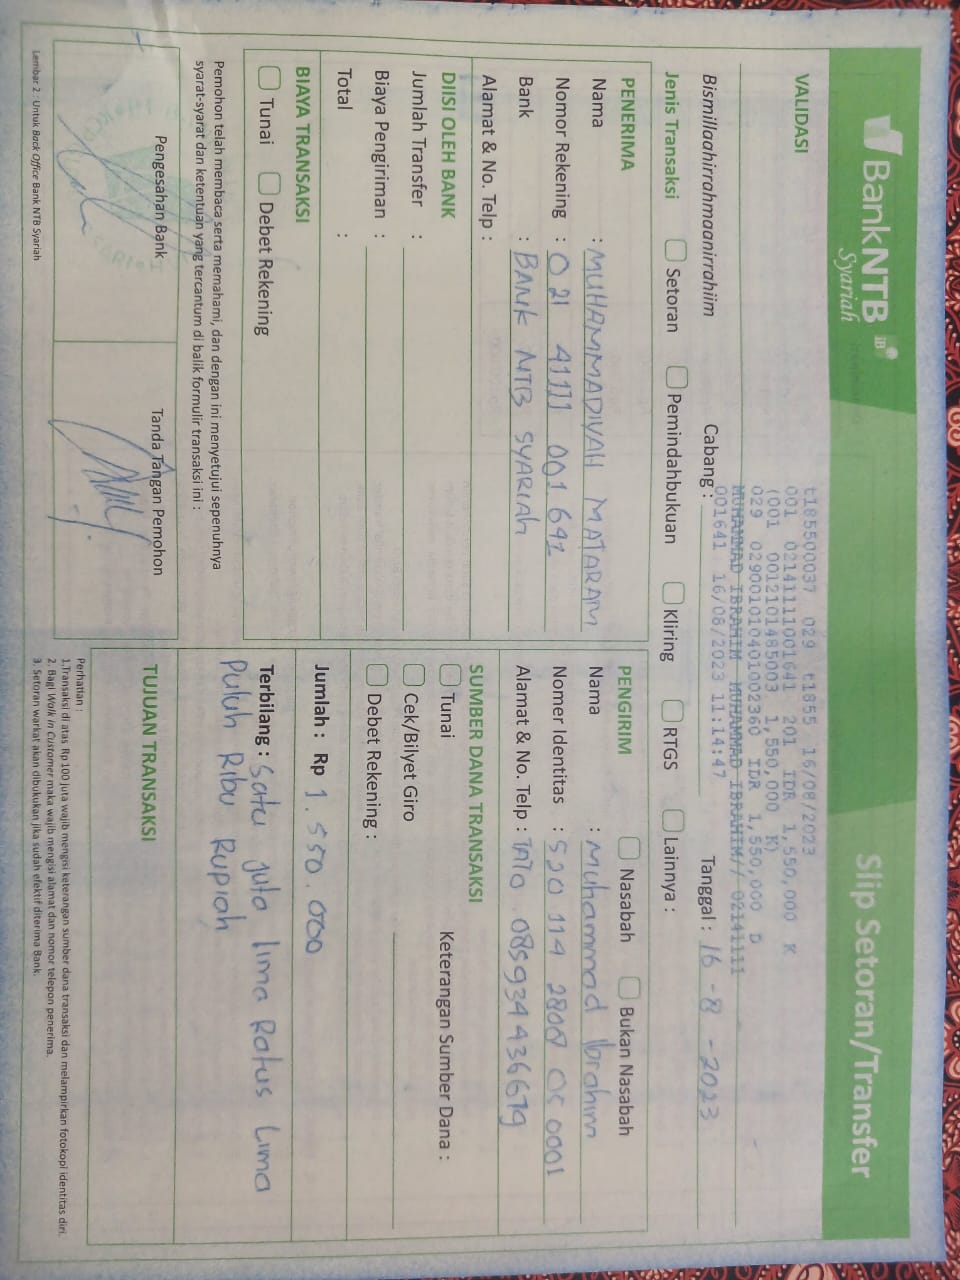 BankNTB
Syariah
iB
Slip Setoran/Transfer
VALIDASI
t18550037 029 t1855 16/08/2023
001 02141111001641 201 IDR 1,550,000 K
(001 0012101485003 1,550,000 K)
029 029001010401002360 IDR 1,550,000 D
MUHAMMAD IBRAHIM MUHAMMAD IBRAHIM// 02141111
001641 16/08/2023 11:14:47
Bismillaahirrahmaanirrahiim
Cabang :
Tanggal : 16 - 8 - 2023
Jenis Transaksi Setoran Pemindahbukuan Kliring RTGS Lainnya :
PENERIMA
Nama : MUHAMMADIYAH MATARAM
Nomor Rekening : 021 41111 001 641
Bank : BANK NTB SYARIAH
Alamat & No. Telp :
PENGIRIM Nasabah Bukan Nasabah
Nama : Muhammad Ibrahim
Nomer Identitas : 520 114 2808 05 0001
Alamat & No. Telp : 085934436679
DIISI OLEH BANK
Jumlah Transfer :
Biaya Pengiriman :
Total :
SUMBER DANA TRANSAKSI
Tunai Keterangan Sumber Dana :
Cek/Bilyet Giro
Debet Rekening :
BIAYA TRANSAKSI
Tunai Debet Rekening
Jumlah : Rp 1.550.000
Terbilang : Satu juta lima Ratus Lima
Puluh Ribu Rupiah
Pemohon telah membaca serta memahami, dan dengan ini menyetujui sepenuhnya
syarat-syarat dan ketentuan yang tercantum di balik formulir transaksi ini :
Pengesahan Bank
Tanda Tangan Pemohon
TUJUAN TRANSAKSI
Perhatian :
1.Transaksi di atas Rp 100 juta wajib mengisi keterangan sumber dana transaksi dan melampirkan fotokopi identitas diri.
2. Bagi Walk in Customer maka wajib mengisi alamat dan nomor telepon penerima.
3. Setoran warkat akan dibukukan jika sudah efektif diterima Bank.
Lembar 2 : Untuk Back Office Bank NTB Syariah